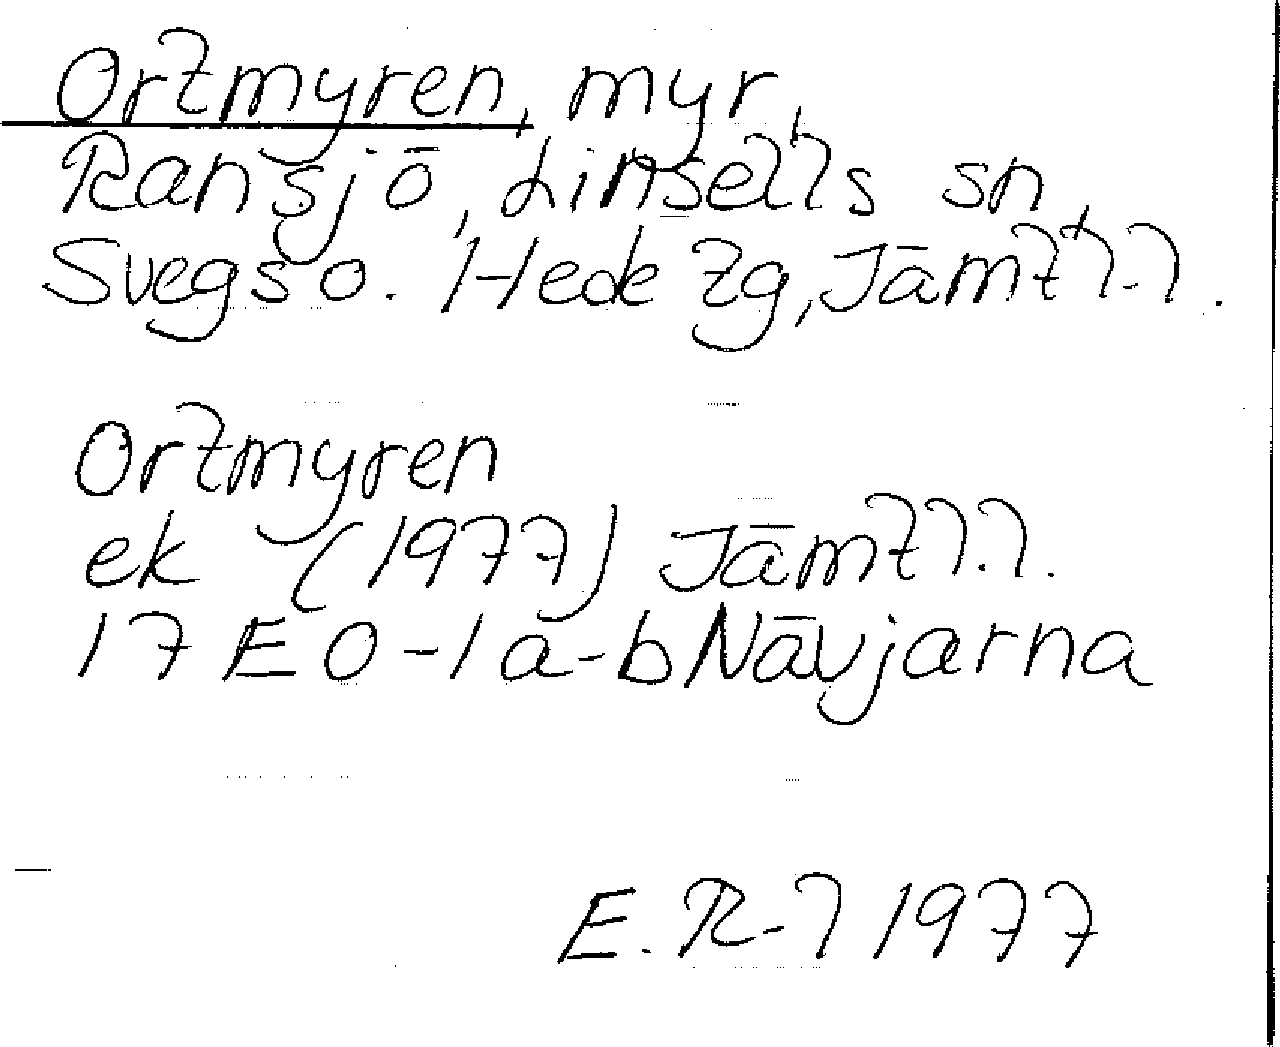 Ortmyren, myr,
Ransjö, Linsells sn,
Svegs o. Hede tg, Jämtl.l.
Ortmyren
ek (1977) Jämtl.l.
17 E 0-1 a-b Nävjarna
E. R-l 1977